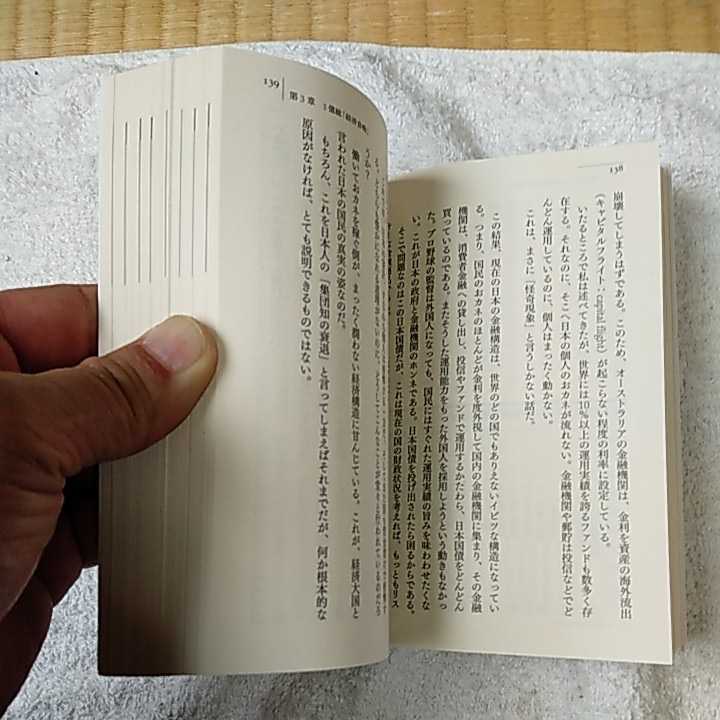 138
崩壊してしまうはずである。このため、オーストラリアの金融機関は、金利を資産の海外流出
(キャピタルフライト:capital flight)が起こらない程度の利率に設定している。
いたるところで私は述べてきたが、世界には10%以上の運用実績を誇るファンドも数多く存
在する。それなのに、そこへ日本の個人のおカネが流れない。金融機関や郵貯は投信などでど
んどん運用しているのに、個人はまったく動かない。
これは、まさに「怪奇現象」と言うしかない話だ。
この結果、現在の日本の金融構造は、世界のどの国でもありえないイビツな構造になってい
る。つまり、国民のおカネのほとんどが金利を度外視して国内の金融機関に集まり、その金融
機関は、消費者金融への貸し出し、投信やファンドで運用するかたわら、日本国債をどんどん
買っているのである。またそうした運用能力をもった外国人を採用しようという動きもなかっ
た。プロ野球の監督は外国人になっても、国民にはすぐれた運用実績の旨みを味わわせたくな
い。これが日本の政府と金融機関のホンネである。日本国債を投げ出されたら困るからである。
そこで問題なのはこの日本国債だが、これは現在の国の財政状況を考えれば、もっともリス
139
第3章
うか?
働いておカネを稼ぐ側が、まったく潤わない経済構造に甘んじている。これが、経済大国と
言われた日本の国民の真実の姿なのだ。
もちろん、これを日本人の「集団知の衰退」と言ってしまえばそれまでだが、何か根本的な
原因がなければ、とても説明できるものではない。